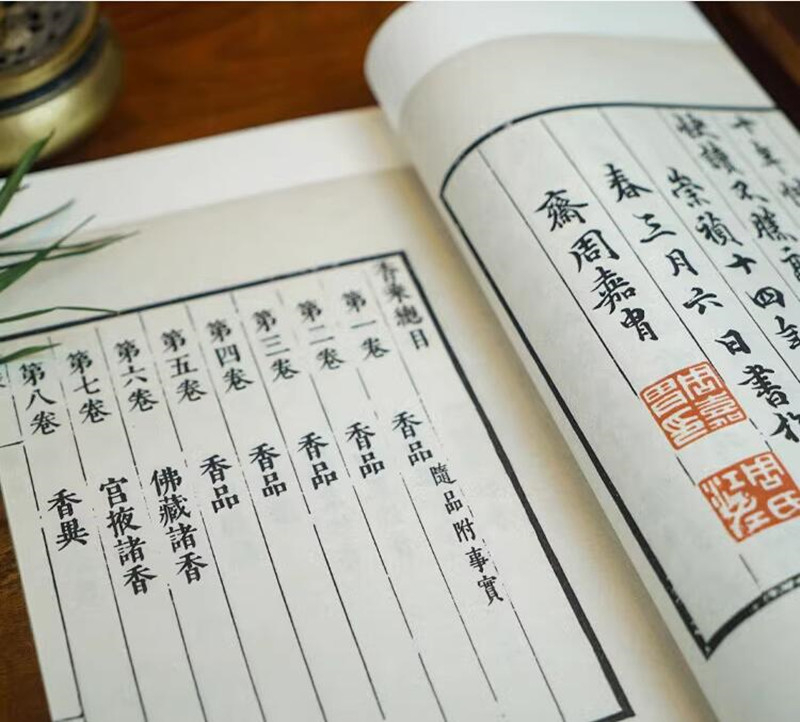 十年
快讀不勝
崇禎十四年
春三月六日書於
齋周嘉胄
周嘉胄印
周氏江左
香乘總目
第一卷 香品 隨品附事實
第二卷 香品
第三卷 香品
第四卷 香品
第五卷 香品
第六卷 佛藏諸香
第七卷 宮掖諸香
第八卷 香異